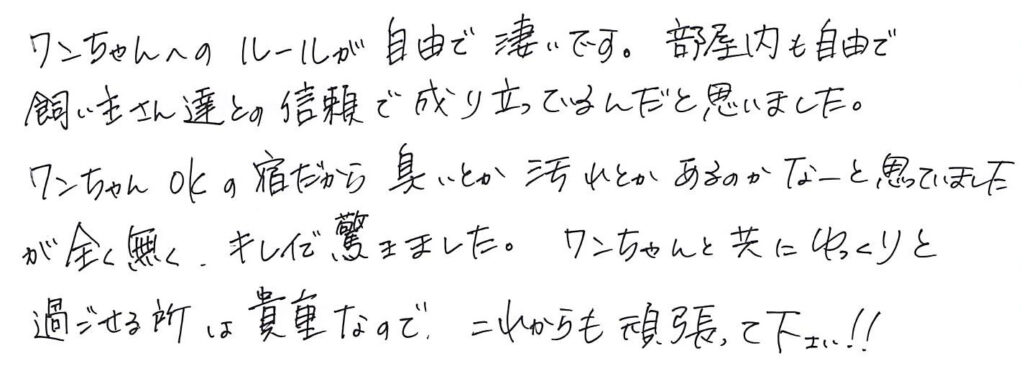 ワンちゃんへの ルールが 自由で 凄いです。 部屋内も自由で
飼い主さん達との信頼で成り立っているんだと思いました。
ワンちゃん OKの宿だから 臭いとか 汚れとか あるのかなーと思っていました
が 全く無く、キレイで驚きました。 ワンちゃんと共にゆっくりと
過ごせる所は貴重なので、これからも頑張って下さい!!